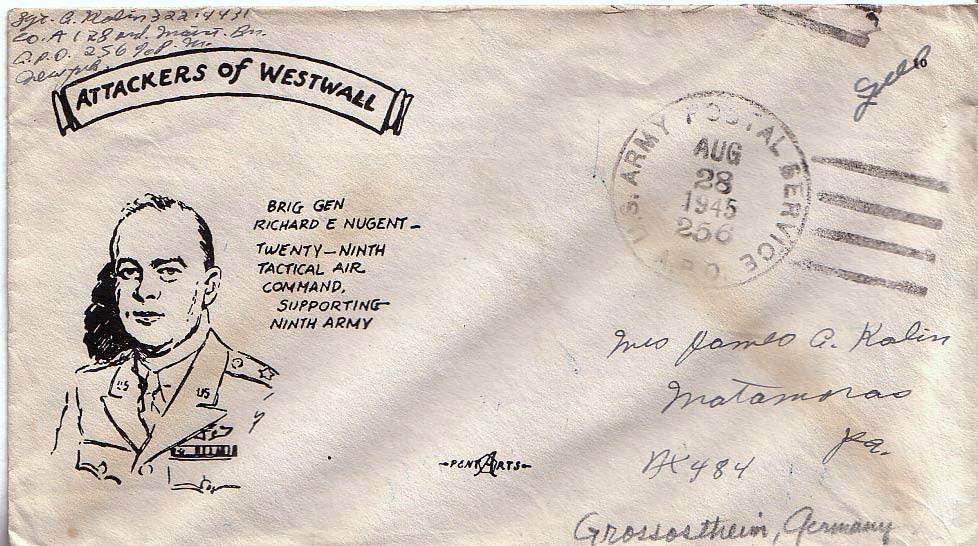 Sgt. A. Kalin 32214431
Co. A 128 Ord. Maint. Bn.
A.P.O. 256 % P.M.
ATTACKERS OF WESTWALL
Free
10
U.S. ARMY POSTAL SERVICE
AUG
28
1945
256
A.P.O.
BRIG GEN
RICHARD E NUGENT—
TWENTY-NINTH
TACTICAL AIR
COMMAND,
SUPPORTING
NINTH ARMY
US US
-PENT ARTS-
Mrs James A. Kalin
Matamoras
Pa.
484
Grossostheim, Germany